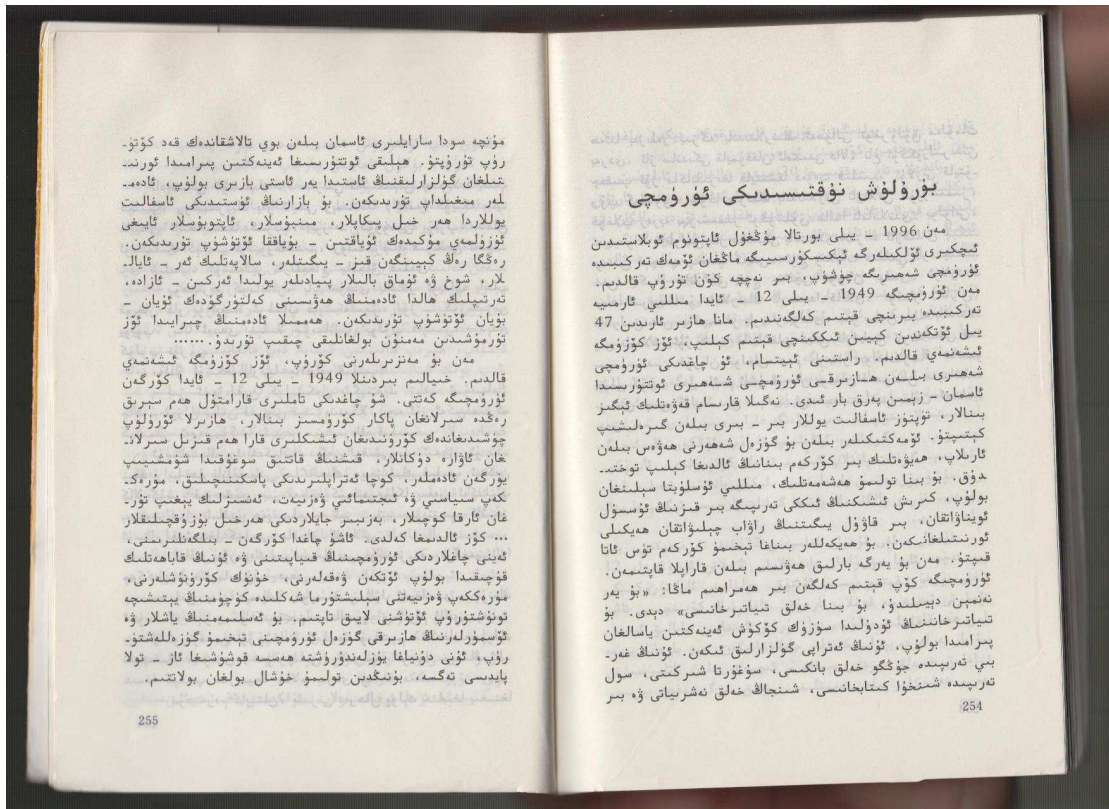 بۇرۇلۇش نۇقتىسىدىكى ئۈرۈمچى
مەن 1996 ـ يىلى بورتالا موڭغۇل ئاپتونوم ئوبلاستىدىن
ئىچكىرى ئۆلكىلەرگە ئېكسكۇرسىيىگە ماڭغان ئۆمەك تەركىبىدە
ئۈرۈمچى شەھىرىگە چۈشۈپ، بىر نەچچە كۈن تۇرۇپ قالدىم.
مەن ئۈرۈمچىگە 1949 ـ يىلى 12 ـ ئايدا مىللىي ئارمىيە
تەركىبىدە بىرىنچى قېتىم كەلگەنىدىم. مانا ھازىر ئارىدىن 47
يىل ئۆتكەندىن كېيىن ئىككىنچى قېتىم كېلىپ، ئۆز كۆزۈمگە
ئىشەنمەي قالدىم. راستىنى ئېيتسام، ئۇ چاغدىكى ئۈرۈمچى
شەھىرى بىلـەن ھـازىرقـى ئۈرۈمچـى شـەھىرى ئوتتۇرىسىدا
ئاسمان ـ زېمىن پەرق بار ئىدى. نەگىلا قارىسام قەۋەتلىك ئېگىز
بىنالار، تۈپتۈز ئاسفالت يوللار بىر ـ بىرى بىلەن گىرەلىشىپ
كېتىپتۇ. ئۆمەكتىكىلەر بىلەن بۇ گۈزەل شەھەرنى ھەۋەس بىلەن
ئارىلاپ، ھەيۋەتلىك بىر كۆركەم بىنانىڭ ئالدىغا كېلىپ توختىـ
دۇق. بۇ بىنا تولىمۇ ھەشەمەتلىك، مىللىي ئۇسلۇبتا سېلىنغان
بولۇپ، كىرىش ئىشىكنىڭ ئىككى تەرىپىگە بىر قىزنىڭ ئۇسسۇل
ئويناۋاتقان، بىر قاۋۇل يىگىتنىڭ راۋاب چېلىۋاتقان ھەيكىلى
ئورنىتىلغانىكەن. بۇ ھەيكەللەر بىناغا تېخىمۇ كۆركەم تۈس ئاتا
قىپتۇ. مەن بۇ يەرگە بارلىق ھەۋىسىم بىلەن قاراپلا قاپتىمەن.
ئۈرۈمچىگە كۆپ قېتىم كەلگەن بىر ھەمراھىم ماڭا: «بۇ يەر
نەنمېن دېيىلىدۇ، بۇ بىنا خەلق تىياتىرخانىسى» دېدى. بۇ
تىياتىرخانىنىڭ ئۇدۇلىدا سۈزۈك كۆكۈش ئەينەكتىن ياسالغان
پىرامىدا بولۇپ، ئۇنىڭ ئەتراپى گۈلزارلىق ئىكەن. ئۇنىڭ غەرـ
بىي تەرىپىدە جۇڭگو خەلق بانكىسى، سۇغۇرتا شىركىتى، سول
تەرىپىدە شىنخۇا كىتابخانىسى، شىنجاڭ خەلق نەشرىياتى ۋە بىر
254
مۇنچە سودا سارايلىرى ئاسمان بىلەن بوي تالاشقاندەك قەد كۆتۈـ
رۈپ تۇرۇپتۇ. ھېلىقى ئوتتۇرىسىغا ئەينەكتىن پىرامىدا ئورنىـ
تىلغان گۈلزارلىقنىڭ ئاستىدا يەر ئاستى بازىرى بولۇپ، ئادەمـ
لەر مىغىلداپ تۇرىدىكەن. بۇ بازارنىڭ ئۈستىدىكى ئاسفالىت
يوللاردا ھەر خىل پىكاپلار، مىنىبۇسلار، ئاپتوبۇسلار ئايىغى
ئۈزۈلمەي مۆكىدەك ئۇياقتىن ـ بۇياققا ئۆتۈشۈپ تۇرىدىكەن.
رەڭگا رەڭ كىيىنگەن قىز ـ يىگىتلەر، سالاپەتلىك ئەر ـ ئايالـ
لار، شوخ ۋە ئوماق بالىلار پىيادىلەر يولىدا ئەركىن ـ ئازادە،
تەرتىپلىك ھالدا ئادەمنىڭ ھەۋىسىنى كەلتۈرگۈدەك ئۇيان ـ
بۇيان ئۆتۈشۈپ تۇرىدىكەن. ھەممىلا ئادەمنىڭ چىرايىدا ئۆز
تۇرمۇشىدىن مەمنۇن بولغانلىقى چىقىپ تۇرىدۇ.......
مەن بۇ مەنزىرىلەرنى كۆرۈپ، ئۆز كۆزۈمگە ئىشەنمەي
قالدىم. خىيالىم بىردىنلا 1949 ـ يىلى 12 ـ ئايدا كۆرگەن
ئۈرۈمچىگە كەتتى. شۇ چاغدىكى تاملىرى قارامتۇل ھەم سېرىق
رەڭدە سىرلانغان پاكار كۆرۈمسىز بىنالار، ھازىرلا ئۆرۈلۈپ
چۈشىدىغاندەك كۆرۈنىدىغان ئىشىكلىرى قارا ھەم قىزىل سىرلانـ
غان ئاۋارە دۇكانلار، قىشنىڭ قاتتىق سوغۇقىدا شۈمشىيىپ
يۈرگەن ئادەملەر، كوچا ئەتراپلىرىدىكى پاسكىنىچىلىق، مۇرەكـ
كەپ سىياسىي ۋە ئىجتىمائىي ۋەزىيەت، ئەنسىزلىك يېغىپ تۇرـ
غان ئارقا كوچىلار، بەزىبىر جايلاردىكى ھەرخىل بۇزۇقچىلىقلار
... كۆز ئالدىمغا كەلدى. ئاشۇ چاغدا كۆرگەن ـ بىلگەنلىرىمنى،
ئەينى چاغلاردىكى ئۈرۈمچىنىڭ قىياپىتىنى ۋە ئۇنىڭ قاباھەتلىك
قوچىقىدا بولۇپ ئۆتكەن ۋەقەلەرنى، خۇنۈك كۆرۈنۈشلەرنى،
مۇرەككەپ ۋەزىيەتنى سېلىشتۇرما شەكىلدە كۈچۈمنىڭ يېتىشىچە
تونۇشتۇرۇپ ئۆتۈشنى لايىق تاپتىم. بۇ ئەسلىمەمنىڭ ياشلار ۋە
ئۆسمۈرلەرنىڭ ھازىرقى گۈزەل ئۈرۈمچىنى تېخىمۇ گۈزەللەشتۈـ
رۈپ، ئۇنى دۇنياغا يۈزلەندۈرۈشتە ھەسسە قوشۇشىغا ئاز ـ تولا
پايدىسى تەگسە، بۇنىڭدىن تولىمۇ خۇشال بولغان بولاتتىم.
255